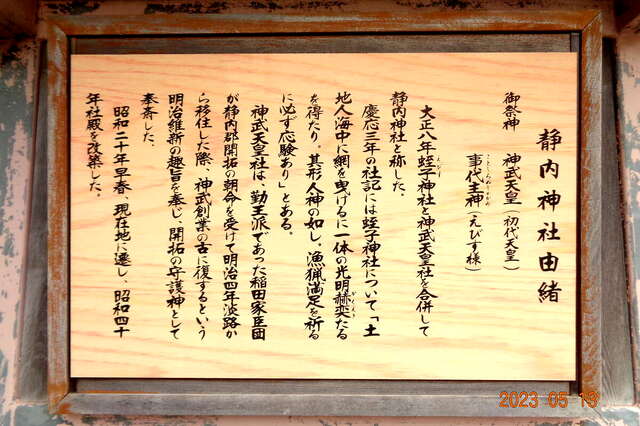 静内神社由緒
御祭神　神武天皇（初代天皇）
事代主神（えびす様）
大正八年蛭子神社と神武天皇社を合併して
静内神社と称した。
慶応三年の社記には蛭子神社について「土
地人海中に網を曳けるに一体の光明赫奕たる
を得たり。其形人神の如し、漁猟満足を祈る
に必ず応験あり」とある。
神武天皇社は、勤王派であった稲田家臣団
が静内郡開拓の朝命を受けて明治四年淡路か
ら移住した際、神武創業の古に復するという
明治維新の趣旨を奉じ、開拓の守護神として
奉斎した。
昭和二十年早春、現在地に遷し、昭和四十
年社殿を改築した。
2023 05 13